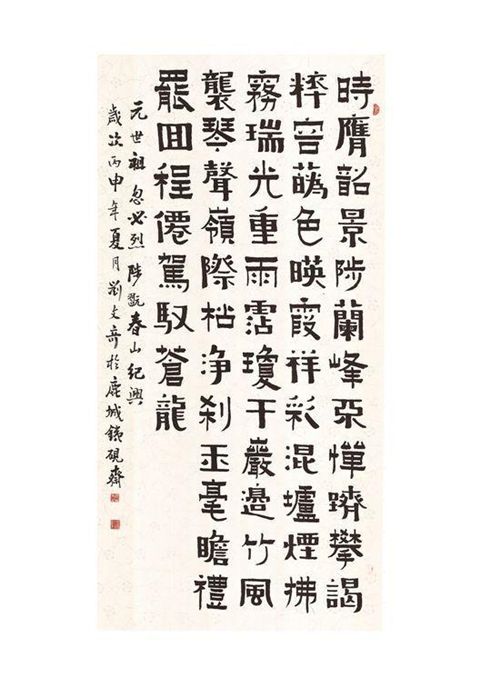 時膺韶景陟蘭峰不憚躋攀謁
粹容蘤色暎霞祥彩混壚煙拂
霧瑞光重雨霑瓊干巖邊竹風
襲琴聲嶺際松淨刹玉毫瞻禮
罷囬程僊駕馭蒼龍
元世祖忽必烈陟翫春山紀興
歲次丙申年夏月劉文奇於鹿城鐵硯齋